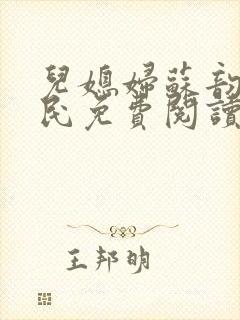 兒媳婦蘇韵
民免費閱讀
王邦明